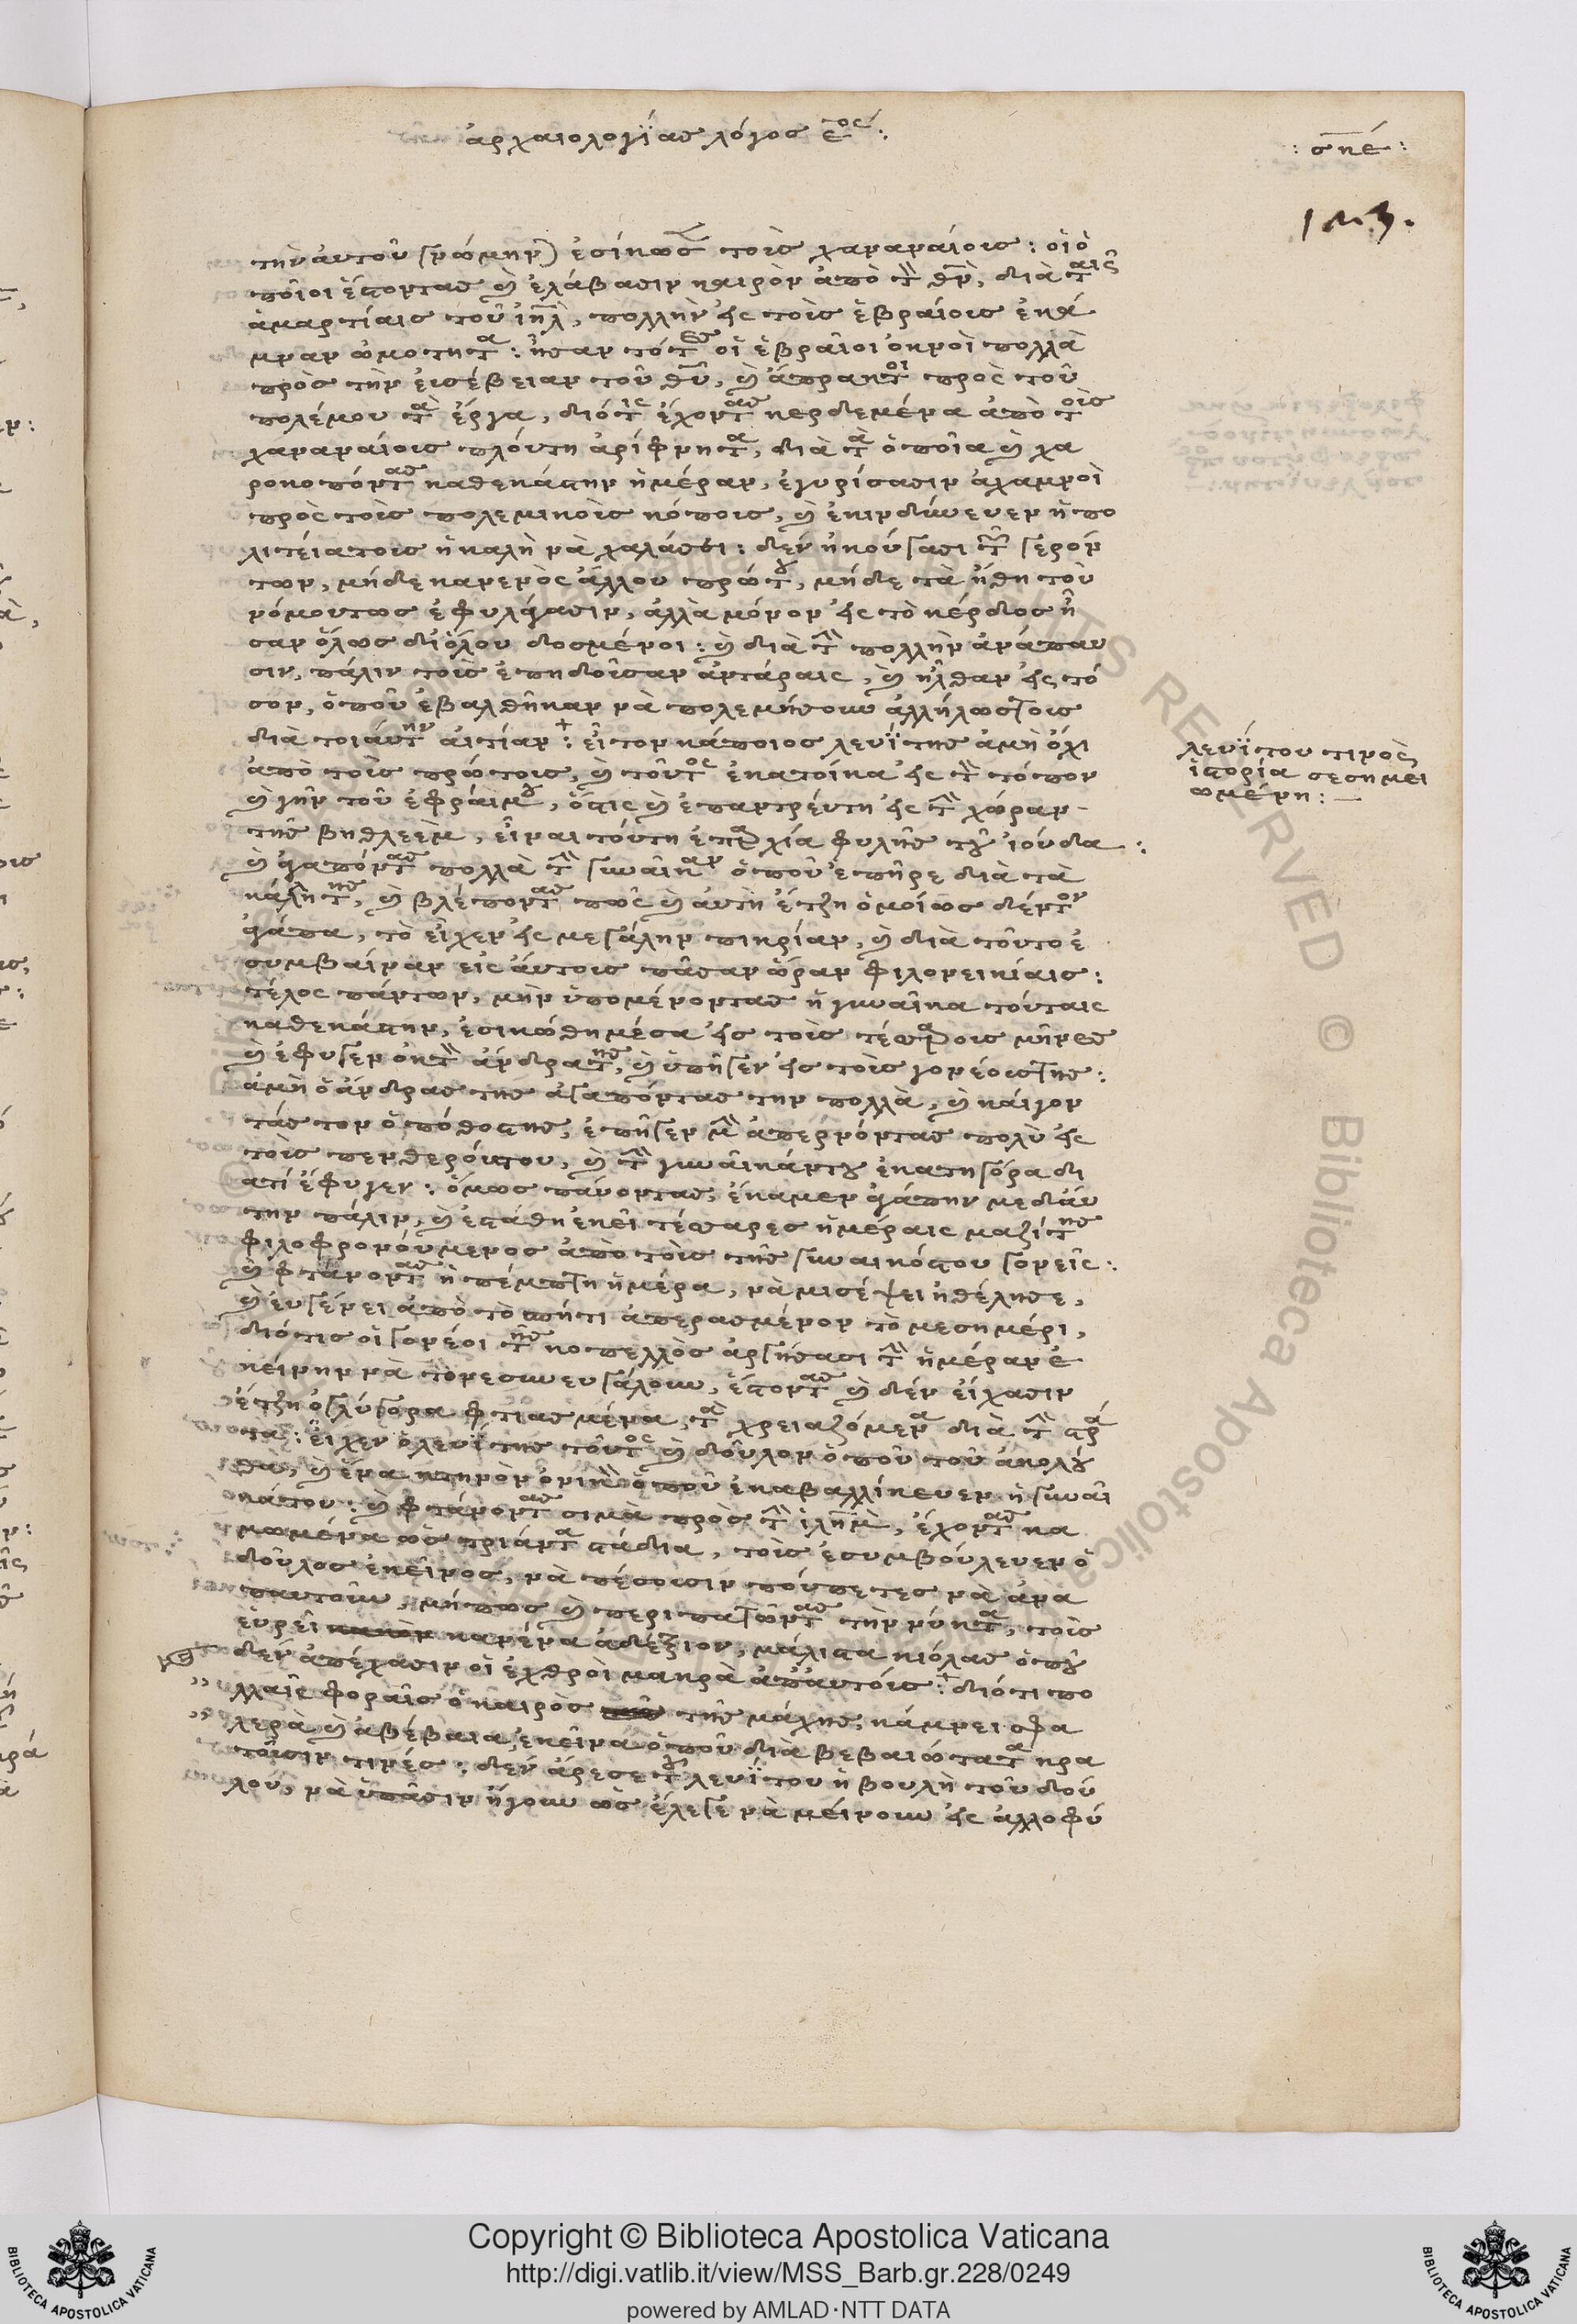 ἀρχαιολογίας λόγος ε^ος:
:σπε:
143.
τὴν αὐτοῦ γνώμην) ἐσίκωσε τοὺς χαναναίους: οἱ ὁ
ποῖοι ἔστοντας καὶ ἐλάβασιν καιρὸν ἀπὸ τὸν θν, διὰ ταῖς
ἁμαρτίαις τοῦ ιηλ, πολλὴν εἰς τοὺς ἑβραίους ἐκά
μναν ὠμότητα: ἦσαν τότες οἱ ἑβραῖοι ὀκνοὶ πολλὰ
πρὸς τὴν εὐσέβειαν τοῦ θυ, καὶ ἄπρακτοι πρὸς τοῦ
πολέμου τὰ ἔργα, διότις ἔχοντας κερδεμένα ἀπὸ τοὺς
χαναναίους πλούτη ἀρίφνητα, διὰ τὰ ὁποῖα καὶ χα
ροκοπόντας καθεκάστην ἡμέραν, ἐγυρίσασιν ἀχαμνοὶ
πρὸς τοὺς πολεμικοὺς κόπους, καὶ ἐκινδύνευεν ἡ πο
λιτεία τους ἡ καλὴ νὰ χαλάσει: δὲν ἠκούγασι τῶν γερόν
των, μήδε κανενὸς ἄλλου πρώτου, μήδε τὰ ἤθη τοῦ
νόμου τως ἐφυλάγασιν, ἀλλὰ μόνον εἰς τὸ κέρδος ἦ
σαν ὅλως διόλου δοσμένοι: καὶ διὰ τὴν πολλὴν ἀνάπαυ
σιν, πάλιν τοὺς ἐπηδοῦσαν ἀντάραις, καὶ ἦλθαν εἰς τό
σον, ὁποῦ ἐβαλθῆκαν νὰ πολεμήσουν ἀλλήλως τους
διὰ τοιαύτην αἰτίαν: εἶτον κάποιος λευΐτης ἀμὴ ὄχι
ἀπὸ τοὺς πρώτους, καὶ τοῦτος ἐκατοίκα εἰς τὸν τόπον
καὶ γῆν τοῦ ἐφραὶμ, ὅστις καὶ ἐπαντρεύτη εἰς τὴν χώραν
τῆς βηθλεὲμ, εἶναι τούτη ἐπαρχία φυλῆς τοῦ ἰούδα:
καὶ ἀγαπόντας πολλὰ τὴν γυναῖκαν ὁποῦ ἐπῆρε διὰ τὰ
κάλλη της, καὶ βλέποντας πῶς καὶ αὐτὴ ἔτζη ὁμοίως δέν τον
ἀγάπα, τὸ εἶχεν εἰς μεγάλην πικρίαν, καὶ διὰ τοῦτο ἐ
συμβαίναν εἰς αὐτοὺς πᾶσαν ὥραν φιλονεικίαις:
τέλος πάντων, μὴν ὑπομένοντας ἡ γυναῖκα τούταις
καθεκάστην, ἐσικώθη μέσα εἰς τοὺς τέσσαρους μῆνες
καὶ ἔφυγεν ὀκ τὸν ἄνδρα της, καὶ ὑπῆγεν εἰς τοὺς γονέους της:
ἀμὴ ὁ ἄνδρας της ἀγαπόντας την πολλὰ, καὶ καίγον
τάς τον ὁ πόθος της, ἐπῆγεν μὲ ἀπερνόντας πολὺ εἰς
τοὺς πενθερούς του, καὶ τὴν γυναῖκάν του ἐκατηγόρα δι
ατί ἔφυγεν: ὅμως παύοντας, ἔκαμεν ἀγάπην με δ᾽ αὐ
την πάλιν, καὶ ἐστάθη ἐκεῖ τέσσαρες ἡμέραις μαζί της
φιλοφρονούμενος ἀπὸ τοὺς τῆς γυναικός του γονεῖς:
καὶ φτάνοντας ἡ πέμπτη ἡμέρα, νὰ μισέψει ἠθέλησε,
καὶ εὐγένει ἀπὸ τὸ σπήτι ἀπερασμένον τὸ μεσημέρι,
διότις οἱ γονέοι τῆς κοπελλὸς ἀργήσασι τὴν ἡμέραν ἐ
κείνην νὰ τὸν εσυνευγάλουν, ἔστοντας καὶ δὲν εἴχασιν
ἔτζη ὀγλύγορα φτιασμένα, τὰ χρειαζόμενα διὰ τὴν στρά
τα: εἶχεν ὁ λευΐτης τοῦτος καὶ δοῦλον ὁποῦ τοῦ ἀκολού
θα, καὶ ἕνα κτηνὸν ὀνικὸν ὁποῦ ἐκαβαλλίκευεν ἡ γυναῖ
κά του: καὶ φτάνοντας σιμὰ πρὸς τὴν ἱλημ, ἔχοντας κα
μωμένα ὡς τριάντα στάδια, τοὺς ἐσυμβούλευεν ὁ
δοῦλος ἐκεῖνος, νὰ πέσουσιν πούπετες νὰ ἀνα
παυτοῦν, μήπως καὶ περιπατῶντας τὴν νύκτα, τοὺς
εὑρεῖ κανένα ἀδέξιον, μάλιστα κιόλας ὁποῦ
δὲν ἀπέχασιν οἱ ἐχθροὶ μακρὰ ἀπ᾽ αὐτούς: διότι πο
λλαῖς φοραῖς ὁ καιρὸς τῆς μάχης, κάμνει σφα
λερὰ καὶ ἀβέβαια, ἐκεῖνα ὁποῦ διὰ βεβαιώτατα κρα
τοῦσιν τινές: δὲν ἄρεσε τοῦ λευΐτου ἡ βουλὴ τοῦ δού
λου, νὰ ὑπᾶσιν ἤγουν ὡς ἔλεγε νὰ μείνουν εἰς ἀλλοφύ
λευΐτου τινὸς,
ἱστορία σεσημει
ωμένη: